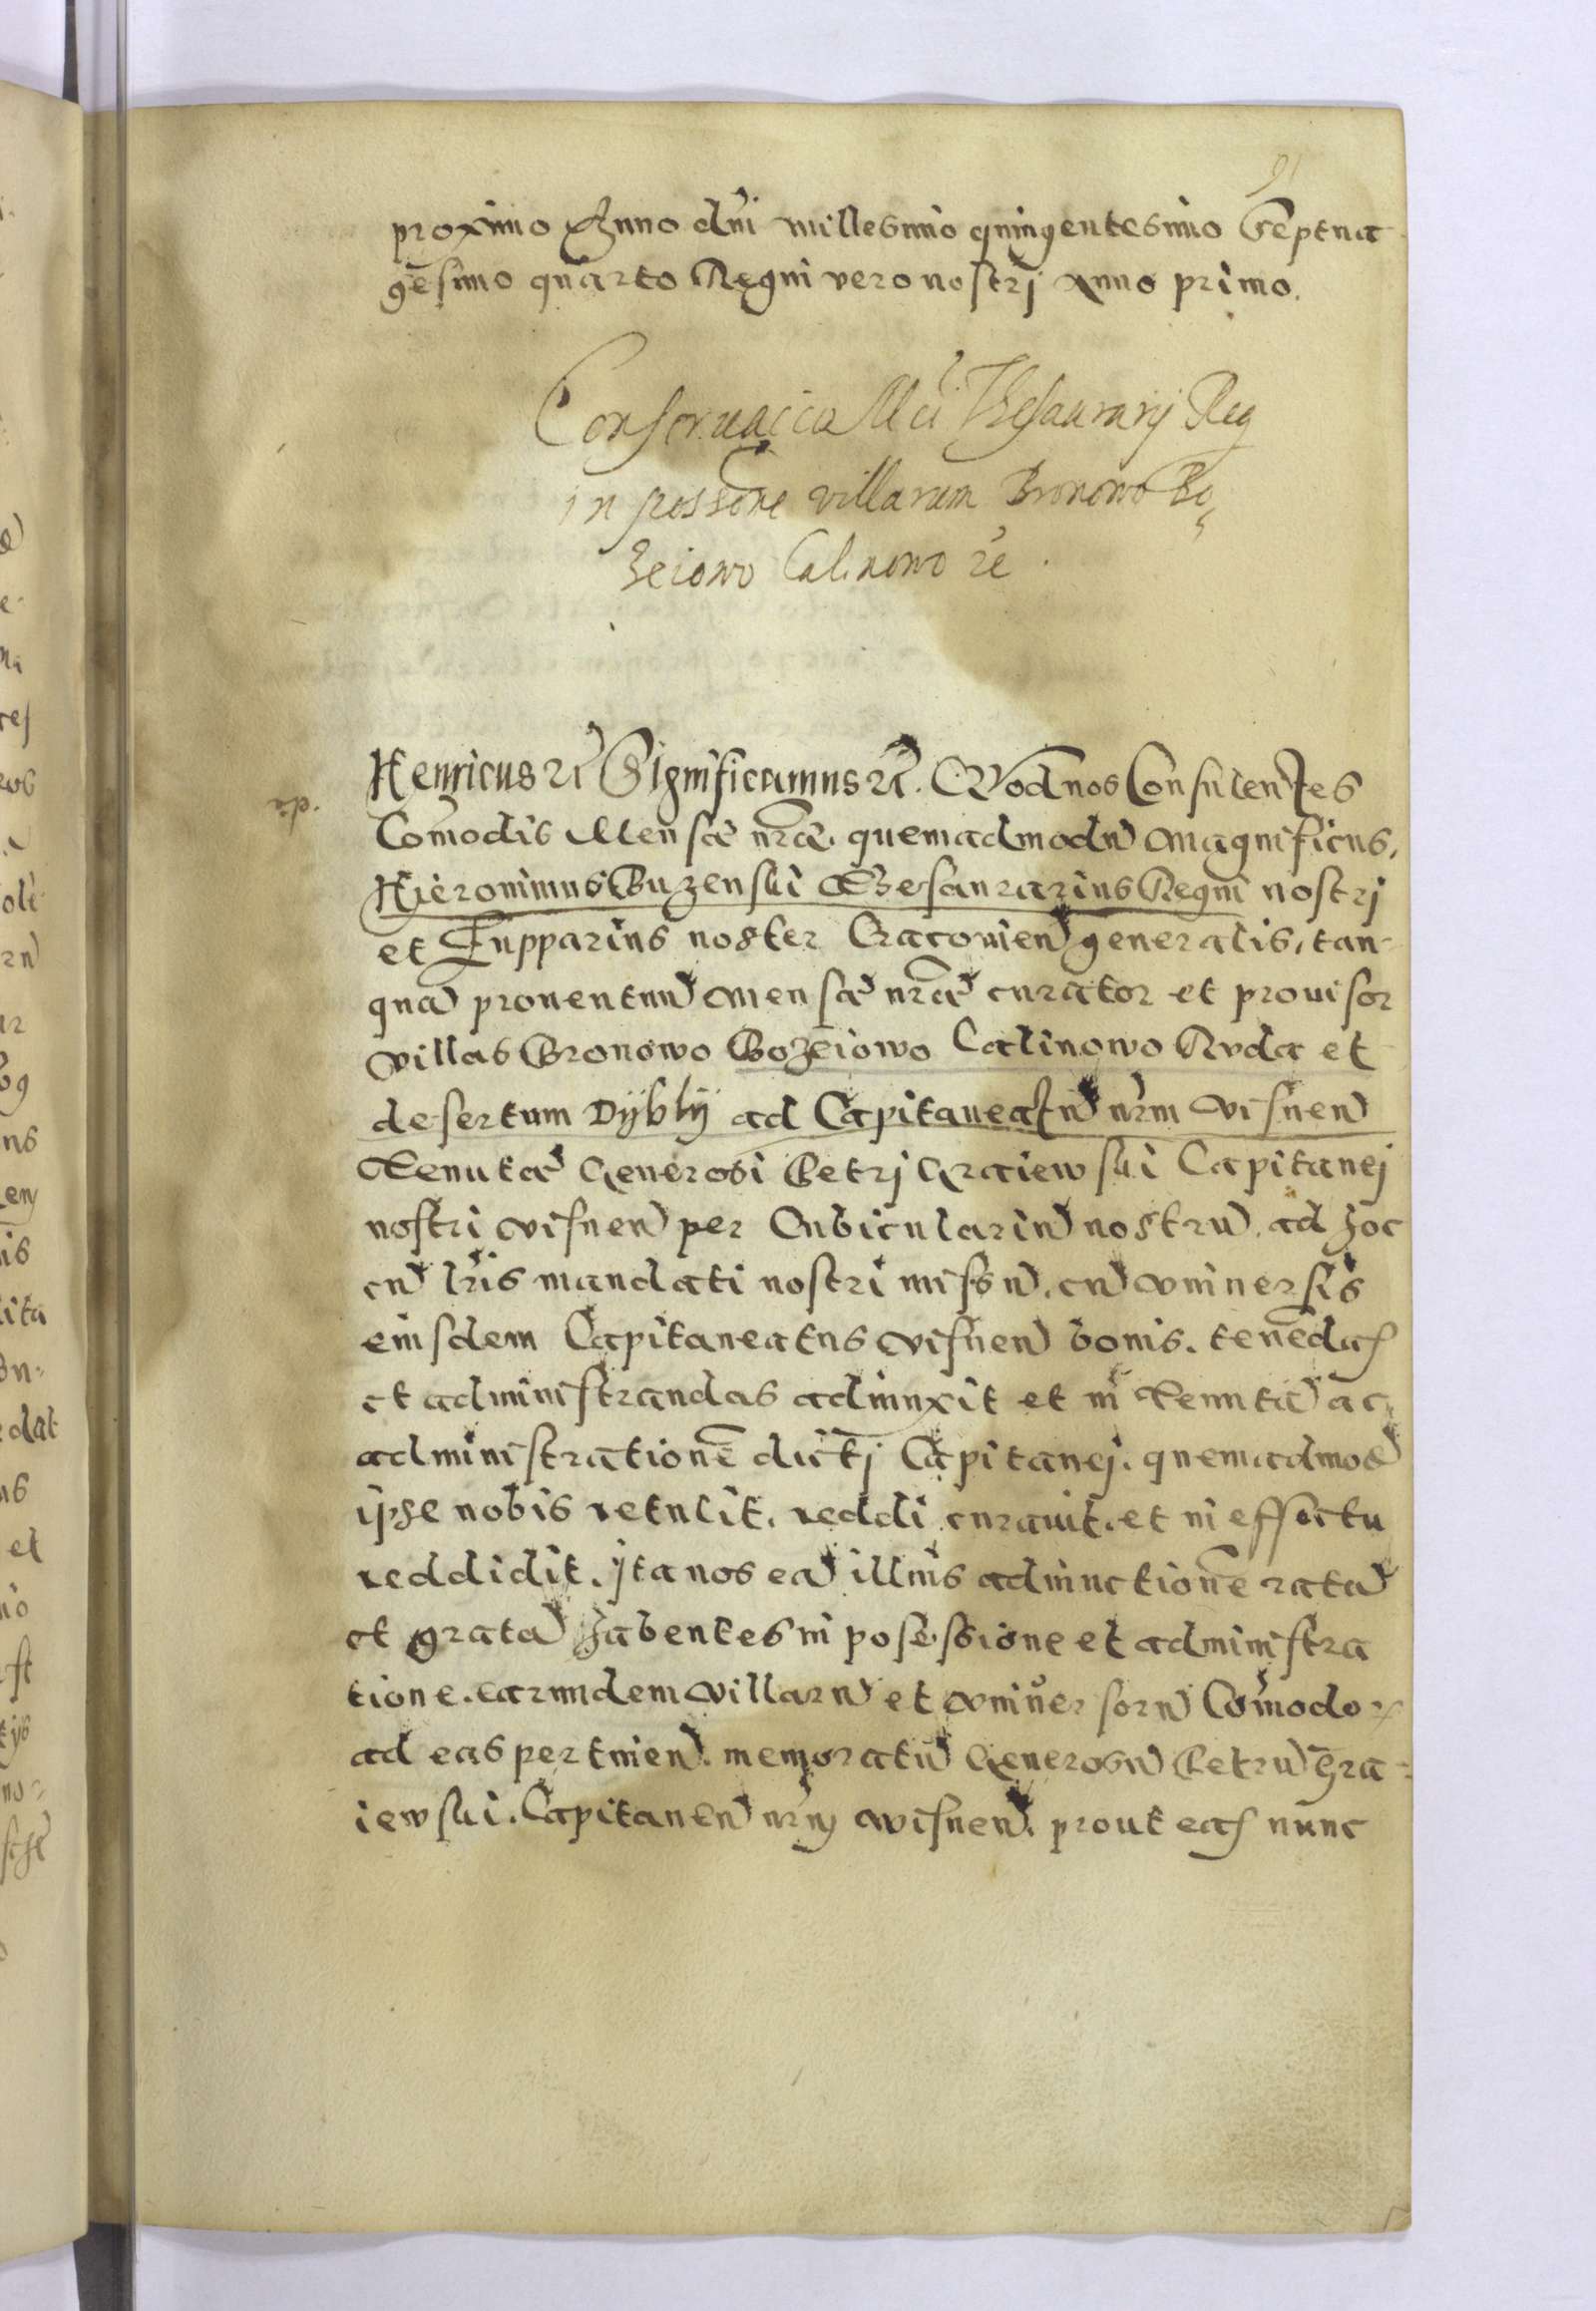 91
proximo Anno dni millesimo quingentesimo Septua
gesimo quarto Regni vero nostrj Anno primo.
Conservacia Mci Thesaurarij Reg
in possone villarum Bronowo Bo
zeiowo Calinowo rc.
Henricus rc Significamus rc. Qvod nos Consulentes
Comodis Mensæ nræ. quemadmodu Magnificus,
Hieronimus Buzenski Thesaurarius Regni nostrj
et Zupparius noster Cracouien generalis, tan-
qua prouentuu Mensæ nræ curator et prouisor
villas Bronowo Bozeiowo Calinowo Ruda et
desertum Dÿblÿ ad Capitaneatu nrm visnen
Tenutæ Generosi Petrj Graiewski Capitanej
nostri visnen per Cubiculariu nostru. ad hoc
cu lris mandati nostri missu. cu vniuersis
eiusdem Capitaneatus visnen bonis. tenedas
et administrandas adiunxit et in Tenuta ac
administratione dictj Capitanej. quemadmod
ipse nobis retulit. reddi curauit. et in effectu
reddidit. jta nos ea illius adiunctione rata
et grata habentes in posessione et administra
tione. earumdem villaru et vniuersoru Comodor
ad eas pertinen. memoratu Generosu Petru Gra-
iewski. Capitaneu nrm wisnen. prout eas nunc